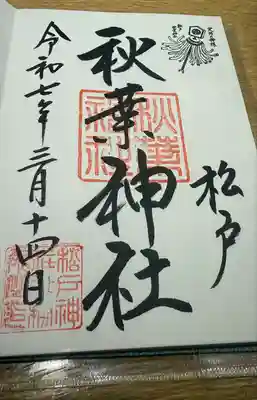 松戸
秋葉神社
令和七年三月十四日
秋葉神社
松戸神